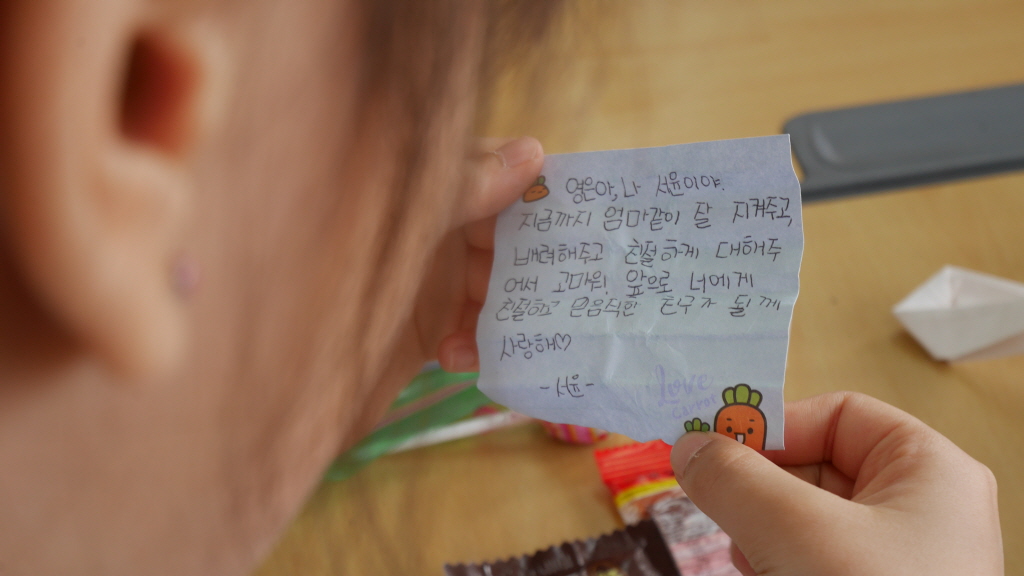 영은아, 나 서윤이야.
지금까지 엄마같이 잘 지켜주고,
배려해주고 친절하게 대해주
어서 고마워! 앞으로 너에게
친절하고 믿음직한 친구가 될게
사랑해♡
-서윤-
Love
Carrot